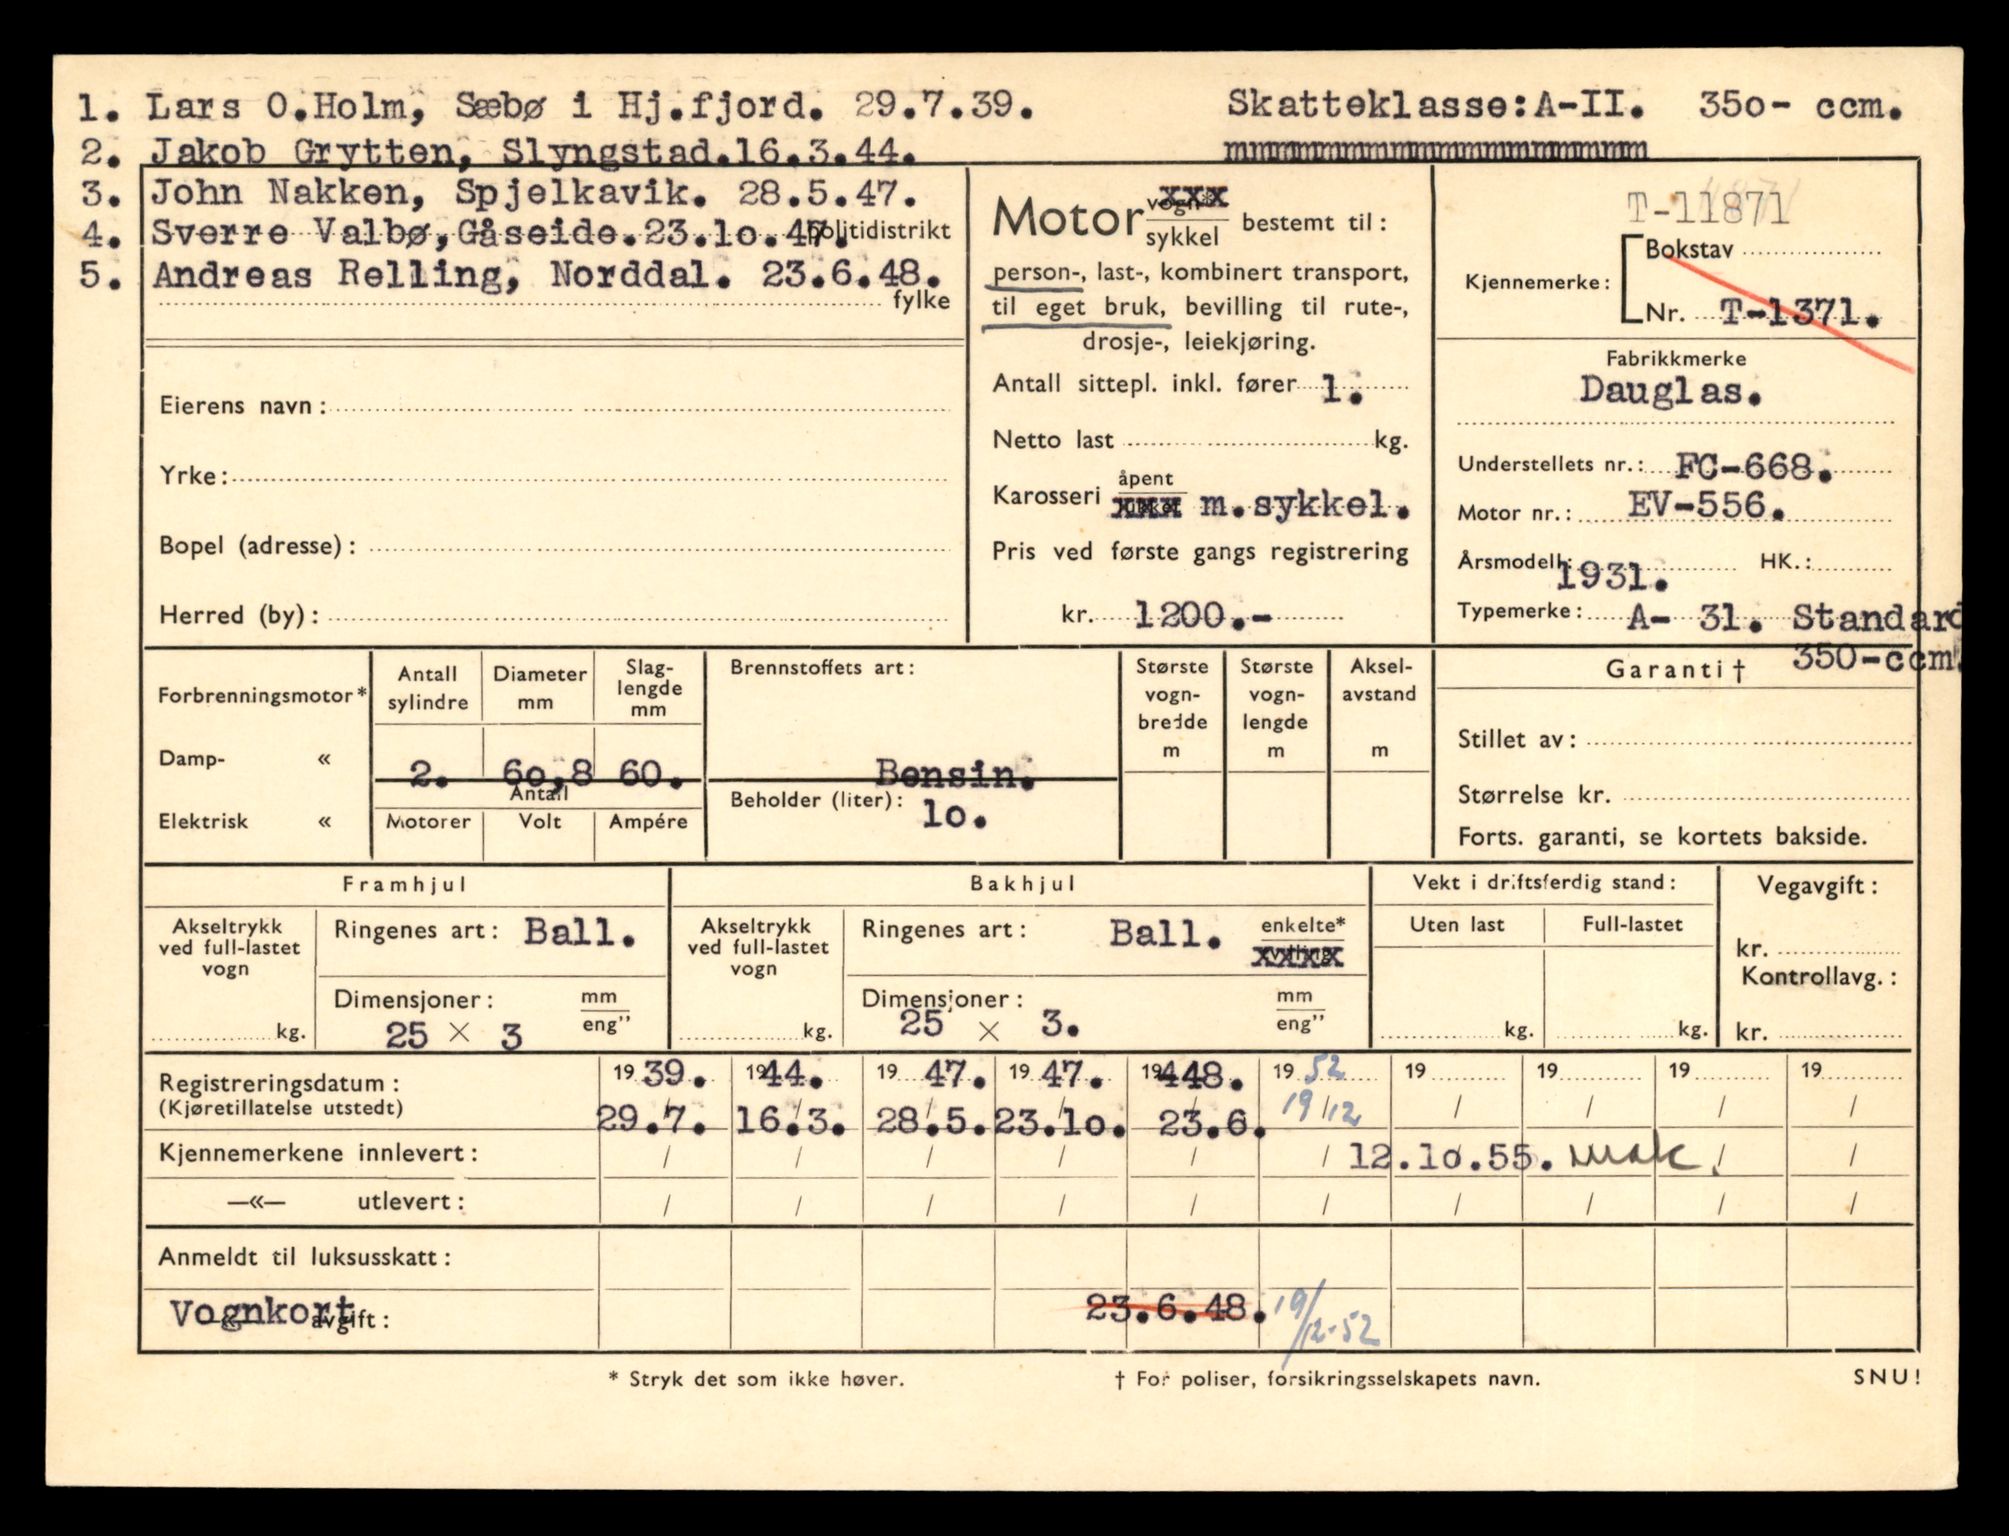 1. Lars O.Holm, Sæbø i Hj.fjord. 29.7.39. Skatteklasse:A-II. 350- ccm.
2. Jakob Grytten, Slyngstad.16.3.44.
3. John Nakken, Spjelkavik. 28.5.47.
4. Sverre Valbø,Gåseide.23.10.47. politidistrikt
5. Andreas Relling, Norddal. 23.6.48.
fylke
Eierens navn:
Yrke:
Bopel (adresse):
Herred (by):
Motor vogn* xxx / sykkel bestemt til:
person-, last-, kombinert transport,
til eget bruk, bevilling til rute-,
drosje-, leiekjøring.
Antall sittepl. inkl. fører 1.
Netto last kg.
Karosseri åpent / xxx m.sykkel.
Pris ved første gangs registrering
kr. 1200.-
T-11871
Kjennemerke: Bokstav
Nr. T-1371.
Fabrikkmerke
Dauglas.
Understellets nr.: FC-668.
Motor nr.: EV-556.
Årsmodell: 1931. HK.:
Typemerke: A- 31. Standard
350-ccm.
Forbrenningsmotor*
Damp- «
Elektrisk «
Antall sylindre
Diameter mm
Slag-
lengde
mm
2. 60,8 60.
Antall
Motorer Volt Ampére
Brennstoffets art:
Bensin.
Beholder (liter): 10.
Største
vogn-
bredde
m
Største
vogn-
lengde
m
Aksel-
avstand
m
Garanti †
Stillet av:
Størrelse kr.
Forts. garanti, se kortets bakside.
Framhjul
Akseltrykk
ved full-lastet
vogn
kg.
Ringenes art: Ball.
Dimensjoner: mm / eng”
25 × 3
Bakhjul
Akseltrykk
ved full-lastet
vogn
kg.
Ringenes art: Ball. enkelte* / xxxx
Dimensjoner: mm / eng”
25 × 3.
Vekt i driftsferdig stand:
Uten last Full-lastet
kg. kg.
Vegavgift:
kr.
Kontrollavg.:
kr.
Registreringsdatum: 19 39. 19 44. 19 47. 19 47. 19 448. 19 52 19 19 19 19
(Kjøretillatelse utstedt) 29.7. 16.3. 28.5. 23.10. 23.6. 19/12 / / / /
Kjennemerkene innlevert: / / / / / / 12.10.55. mak. / /
—«— utlevert: / / / / / / / / / /
Anmeldt til luksusskatt:
Vognkort avgift: 23.6.48. 19/12-52
* Stryk det som ikke høver. † For poliser, forsikringsselskapets navn. SNU!